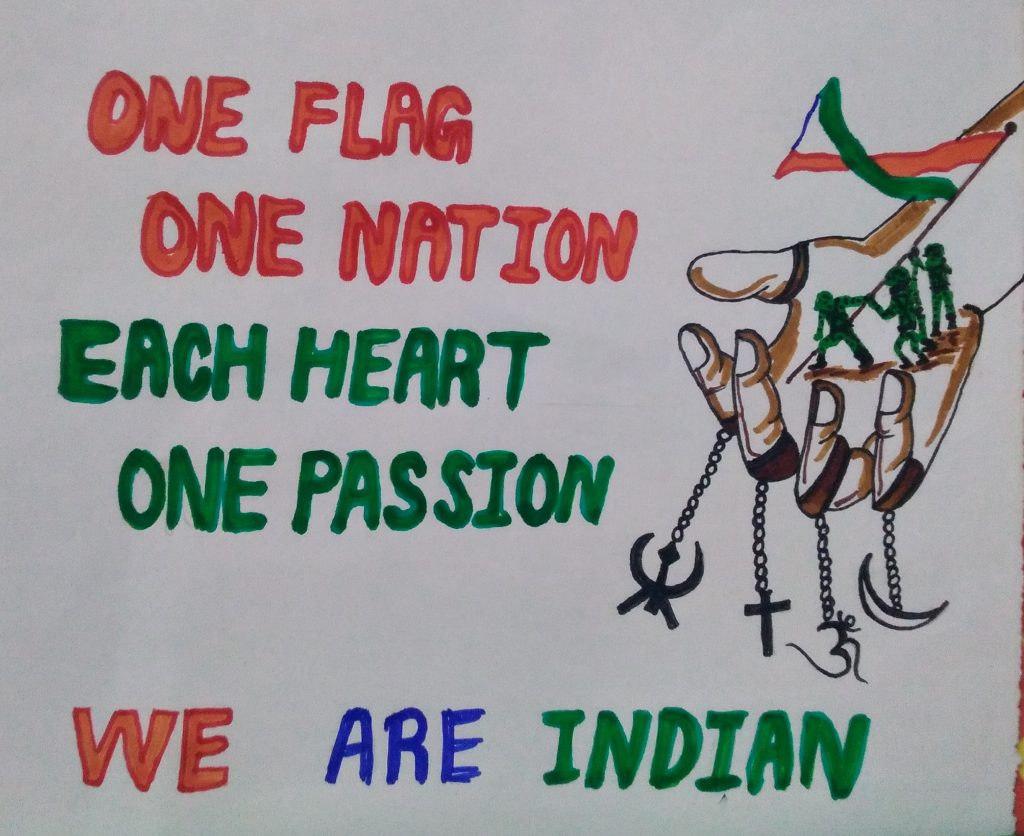 ONE FLAG
ONE NATION
EACH HEART
ONE PASSION
WE ARE INDIAN